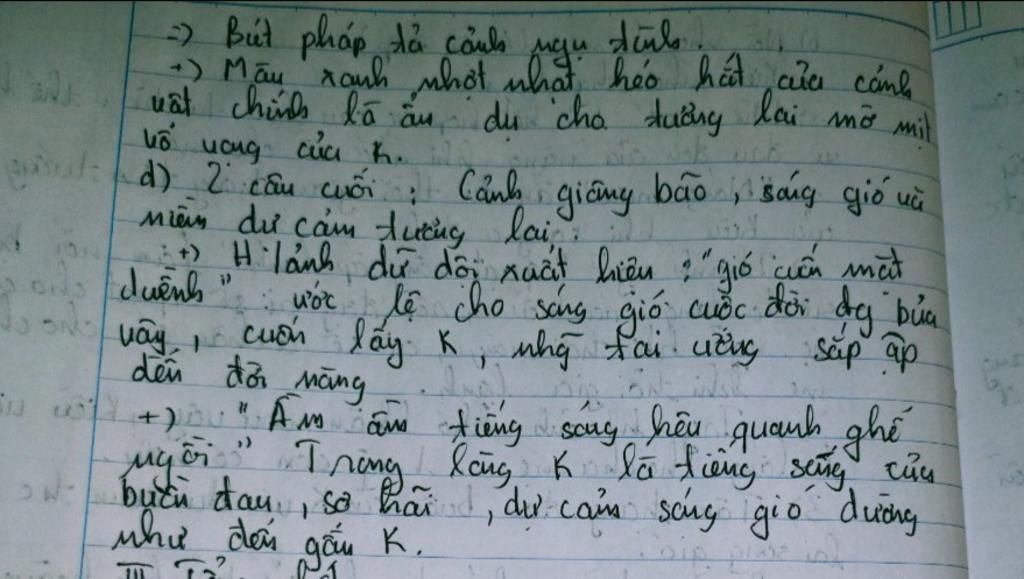 => Bút pháp tả cảnh ngụ tình.
+) Màu xanh nhợt nhạt héo hắt của cảnh
vật chính là ẩn dụ cho tương lai mờ mịt
vô vọng của K.
d) 2 câu cuối : Cảnh giông bão, sóng gió và
niềm dự cảm tương lai.
+) H/ảnh dữ dội xuất hiện : "gió cuốn mặt
duềnh" ước lệ cho sóng gió cuộc đời đg bủa
vây, cuốn lấy K, nhg tai ương sắp ập
đến đời nàng
+) "Ầm ầm tiếng sóng kêu quanh ghế
ngồi" Trong lòng K là tiếng sóng của
buồn đau, sợ hãi, dự cảm sóng gió dường
như đến gần K.
III